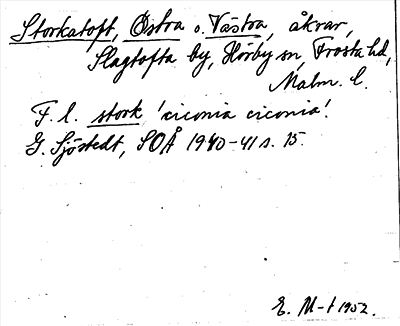 Storkatoft, Östra o. Västra, åkrar,
Slagtofta by, Hörby sn, Frosta hd,
Malm. l.
F. l. stork 'ciconia ciconia'.
G. Sjöstedt, SOÅ 1940-41 s. 15.
E. M-t 1952.